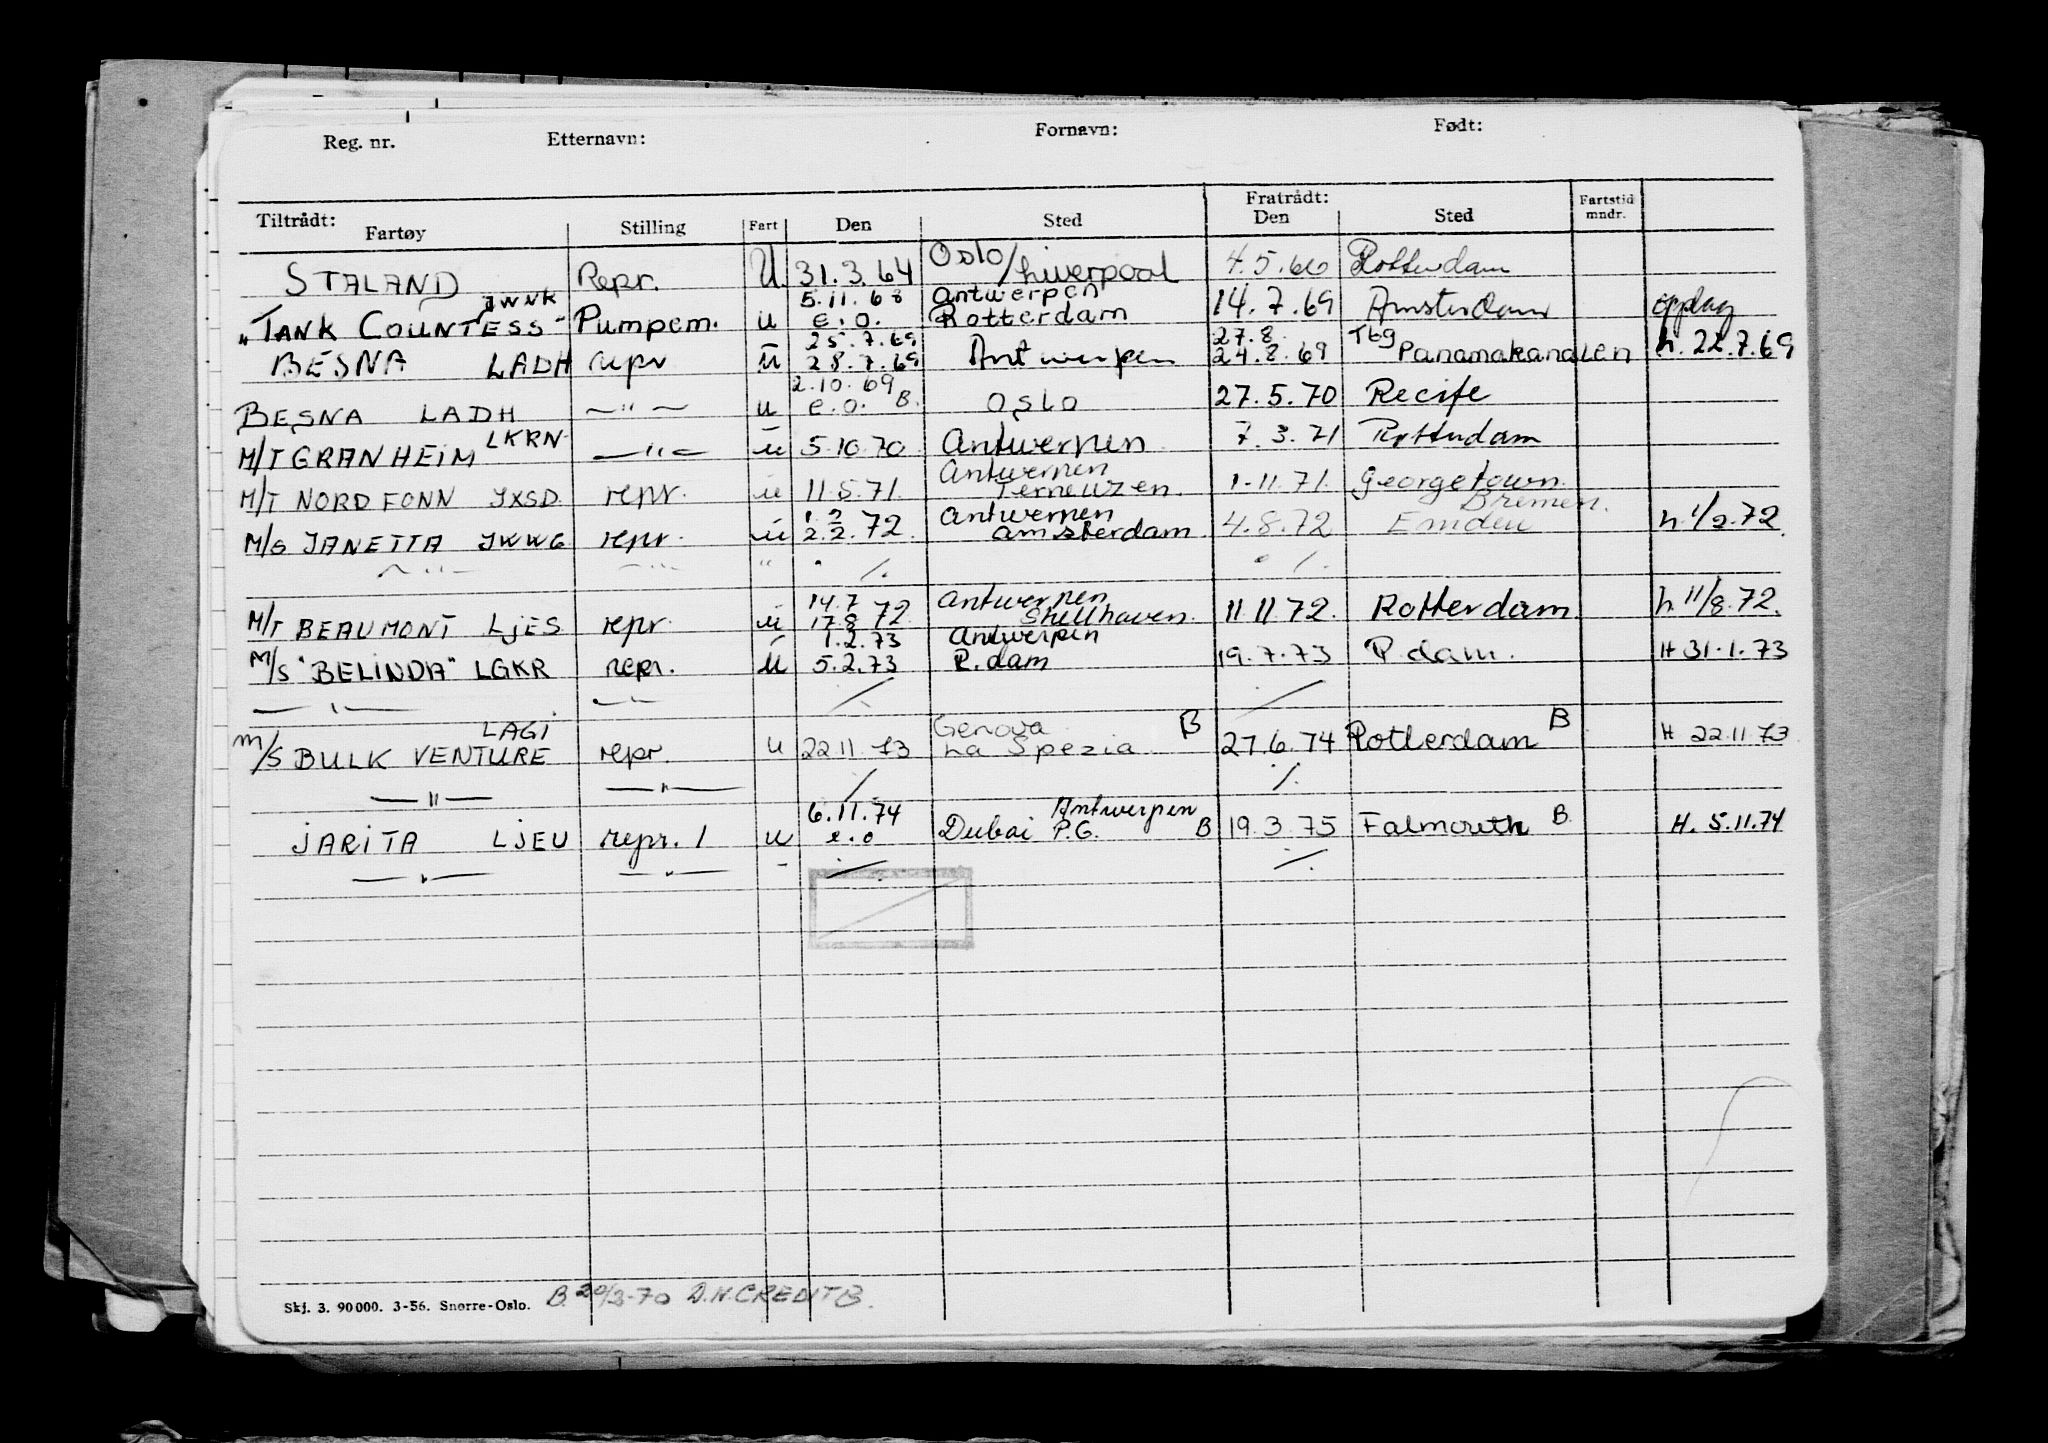 Reg. nr. Etternavn: Fornavn: Født:
Tiltrådt: Fratrådt:
Fartøy Stilling Fart Den Sted Den Sted Fartstid mndr.
STALAND Repr. U 31.3.64 Oslo/Liverpool 4.5.66 Rotterdam
JWNK 5.11.68 Antwerpen
"TANK COUNTESS" Pumpem. u e.o. Rotterdam 14.7.69 Amsterdam oppdag
25.7.69 27.8 Tbg
BESNA LADH repr u 28.7.69 Antwerpen 24.8.69 Panamakanalen h. 22.7.69
2.10.69
BESNA LADH —"— u e.o. B. Oslo 27.5.70 Recife
M/T GRANHEIM LKRN —"— u 5.10.70 Antwerpen 7.3.71 Rotterdam
Antwerpen
M/T NORDFONN JXSD repr. u 11.5.71. Terneuzen. 1.11.71. Georgetown.
1.2 Antwerpen Bremen.
M/S JANETTA JWWG repr. u 2.2.72. Amsterdam. 4.8.72 Emden h. 1/2.72.
—"— —"— " ./. ./.
14.7 Antwerpen
M/T BEAUMONT LJES repr. u 17.8 72. Skillhaven. 11.11.72. Rotterdam. h. 11/8.72.
1.2.73 Antwerpen
M/S "BELINDA" LGKR repr. u 5.2.73 R.dam 19.7.73 R.dam. H 31.1.73
—"— —"— ./. ./.
LAGI Genova B B
M/S BULK VENTURE repr. u 22.11.73 La Spezia 27.6.74 Rotterdam H 22.11.73
—"— —"— ./. ./.
6.11.74 Antwerpen
JARITA LJEU repr. 1 u e.o Dubai P.G. B 19.3.75 Falmouth B. H. 5.11.74
—"— —"— - ./. ./.
Skj. 3. 90000. 3-56. Snorre-Oslo. B. 20/3-70 D.N.CREDITB.